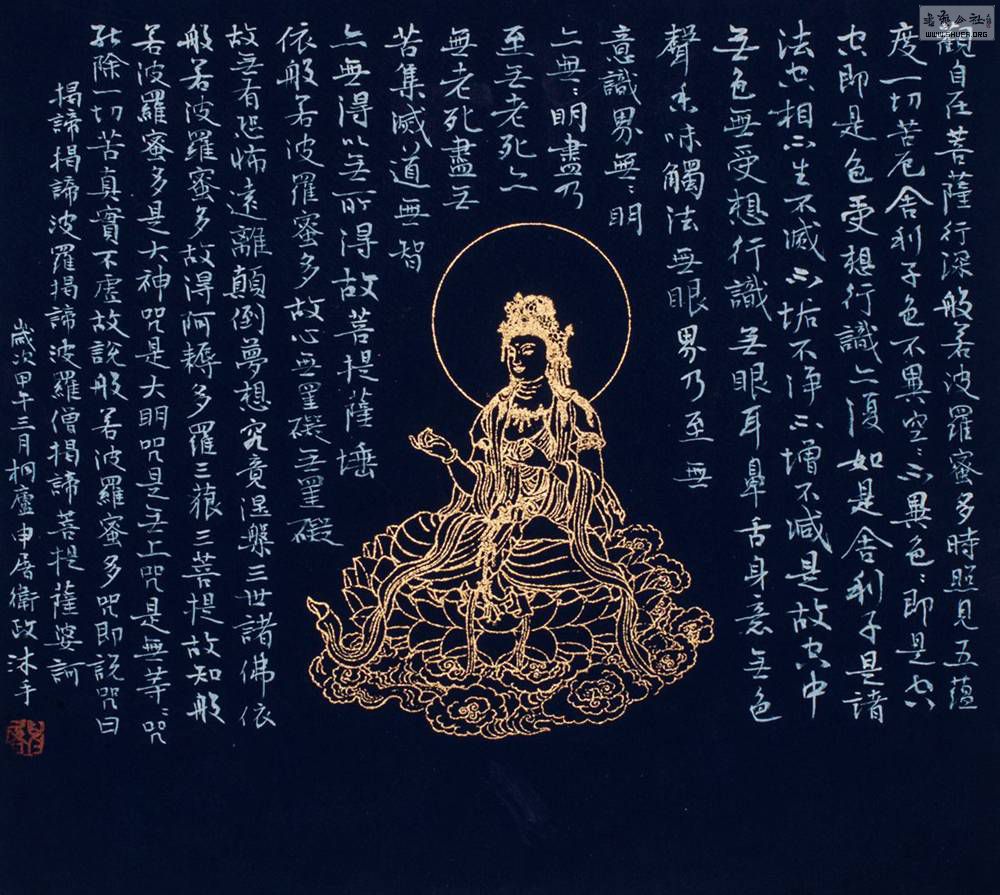 觀自在菩薩行深般若波羅蜜多時照見五蘊
度一切苦厄舍利子色不異空〻不異色〻即是空
空即是色受想行識亦復如是舍利子是諸
法空相不生不滅不垢不淨不增不減是故空中
无色無受想行識无眼耳鼻舌身意无色
聲香味觸法無眼界乃至無
意識界無〻明
亦無〻明盡乃
至无老死亦
無老死盡无
苦集滅道無智
亦無得以无所得故菩提薩埵
依般若波羅蜜多故心无罣礙无罣礙
故无有恐怖遠離顛倒夢想究竟涅槃三世諸佛依
般若波羅蜜多故得阿耨多羅三藐三菩提故知般
若波羅蜜多是大神咒是大明咒是无上咒是無等〻咒
能除一切苦真實不虛故說般若波羅蜜多咒即說咒曰
揭諦揭諦波羅揭諦波羅僧揭諦菩提薩婆訶
歲次甲午三月桐廬申屠衛政沐手